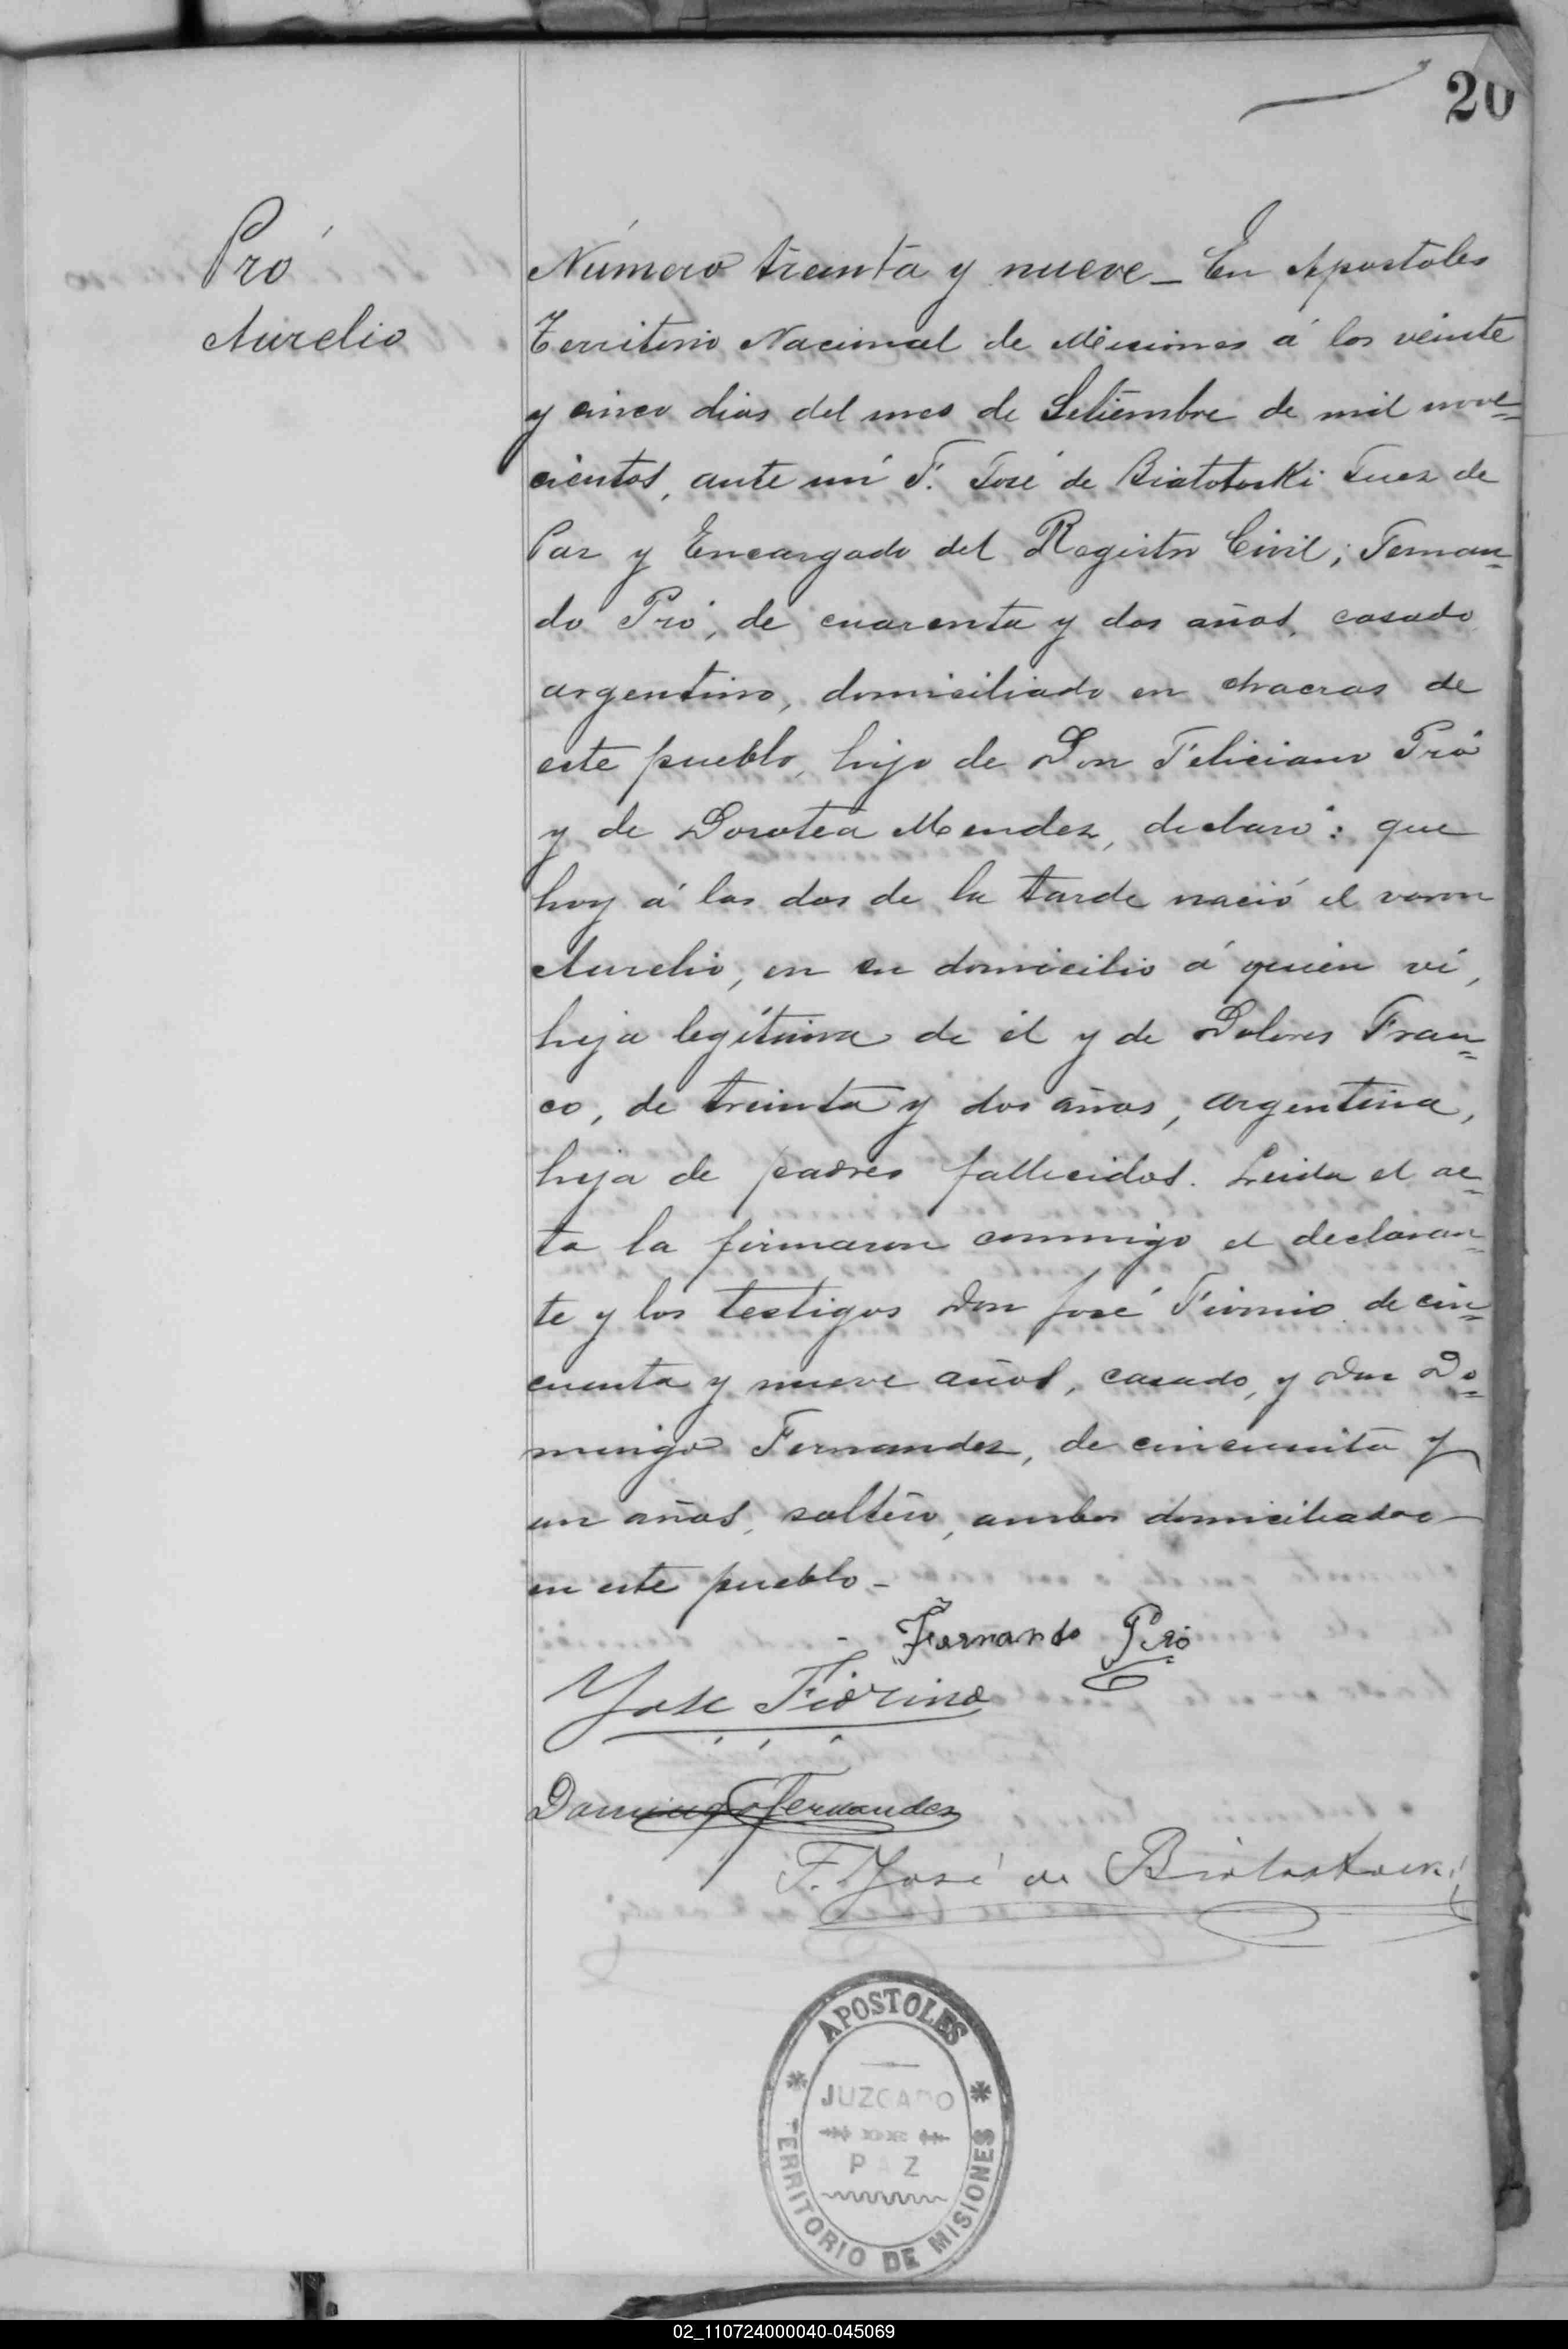 20
Pró
Aurelio
Número treinta y nueve_ En Apostoles
Territorio Nacional de Misiones á los veinte
y cinco dias del mes de Setiembre de mil nove=
cientos, ante mí F. José de Bialostoski Juez de
Paz y Encargado del Registro Civil; Fernan=
do Pró, de cuarenta y dos años, casado
argentino, domiciliado en chacras de
este pueblo, hijo de Don Feliciano Pró
y de Dorotea Mendez, declaró: que
hoy á las dos de la tarde nació el varon
Aurelio, en su domicilio á quien ví,
hija legítima de él y de Dolores Fran=
co, de treinta y dos años, argentina,
hija de padres fallecidos. Leida el ac=
ta la firmaron conmigo el declaran=
te y los testigos Don José Fiorino de cin=
cuenta y nueve años, casado, y Don Do=
mingo Fernandez, de cincuenta y
un años, soltero, ambos domiciliados
en este pueblo_
Fernando Pró
Jose Fiorino
Domingo Fernandez
F. José de Bialostoski
APOSTOLES
JUZGADO
DE
PAZ
TERRITORIO DE MISIONES
02_110724000040-045069